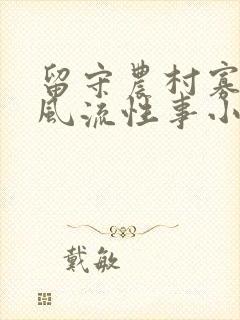 留守農村寡
風流性事小
戴敏